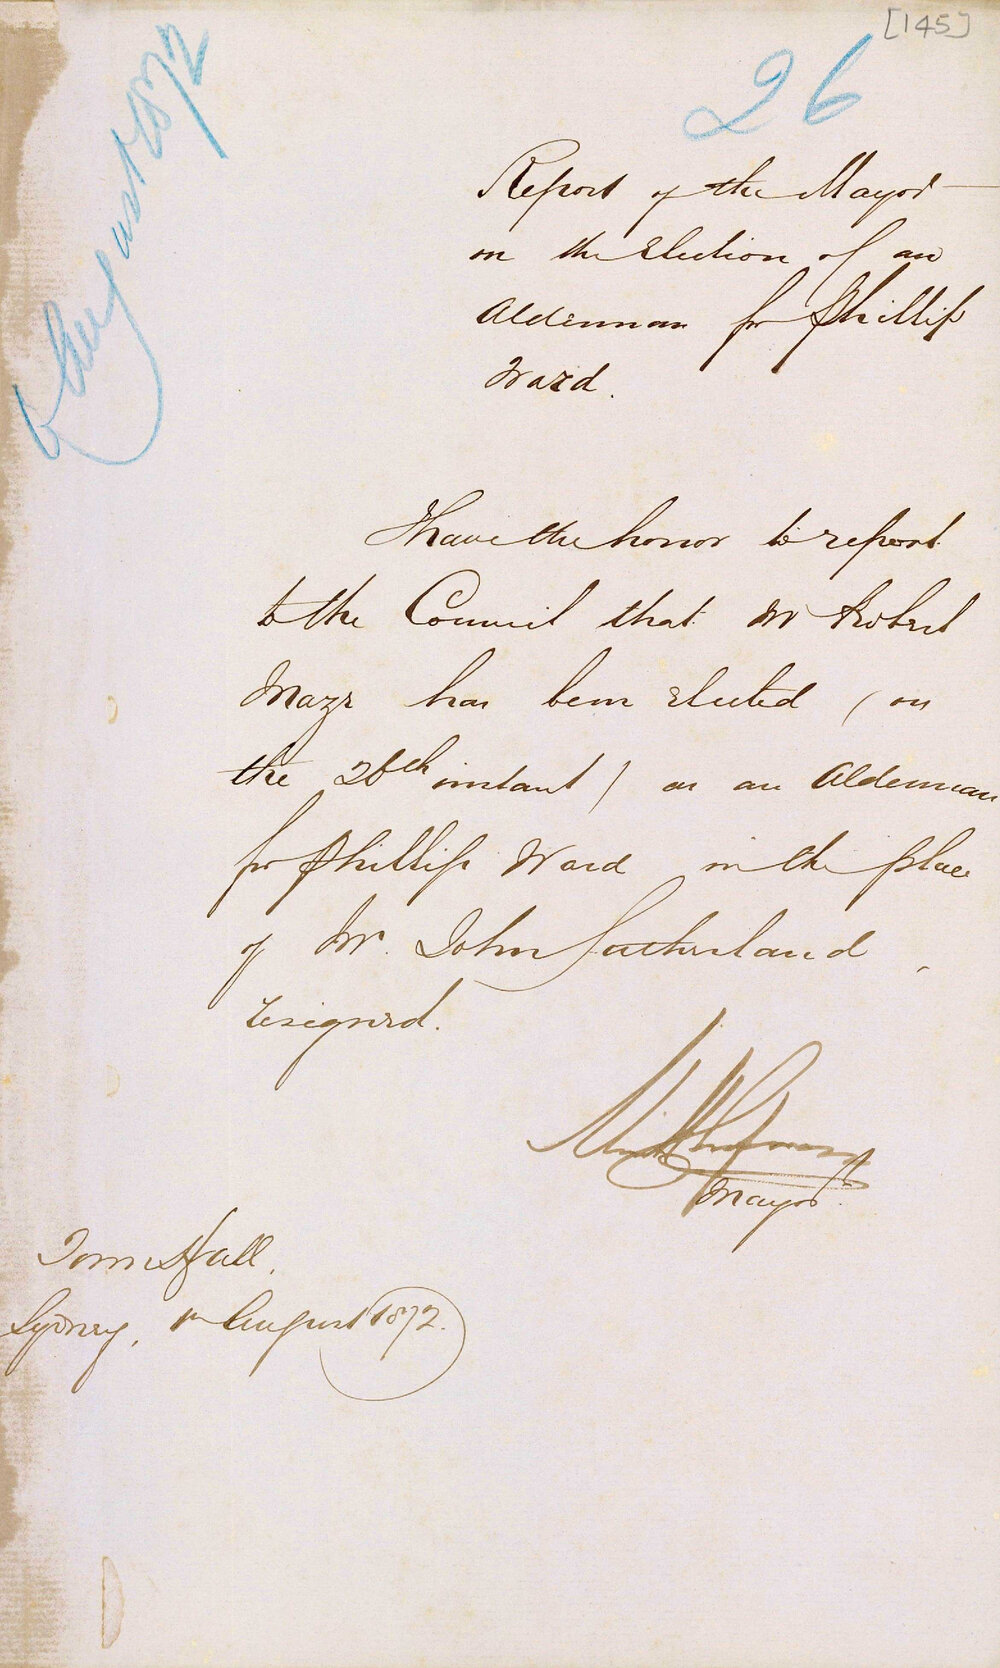 [145]
26
August 1872
Report of the Mayor
on the Election of an
Alderman for Phillip
Ward.
I have the honor to report
to the Council that Mr Robert
has been elected (on
the 26th instant) as an Alderman
for Phillip Ward in the place
of Mr. John Sutherland,
resigned.
Mayor
Town Hall,
Sydney, August 1872.